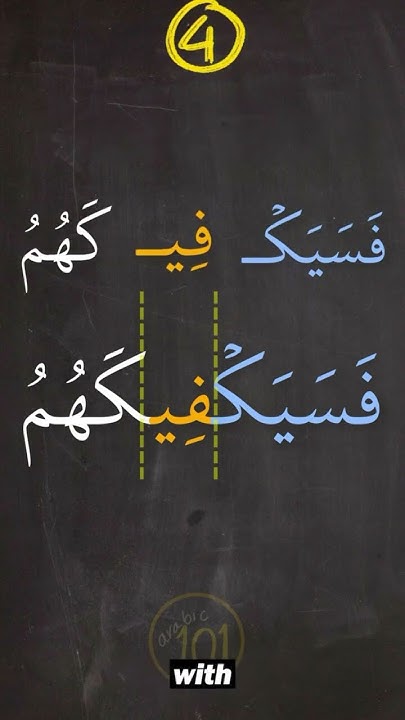 4
فَسَيَكْـ فِيـ كَهُمُ
فَسَيَكْفِيكَهُمُ
arabic
101
with